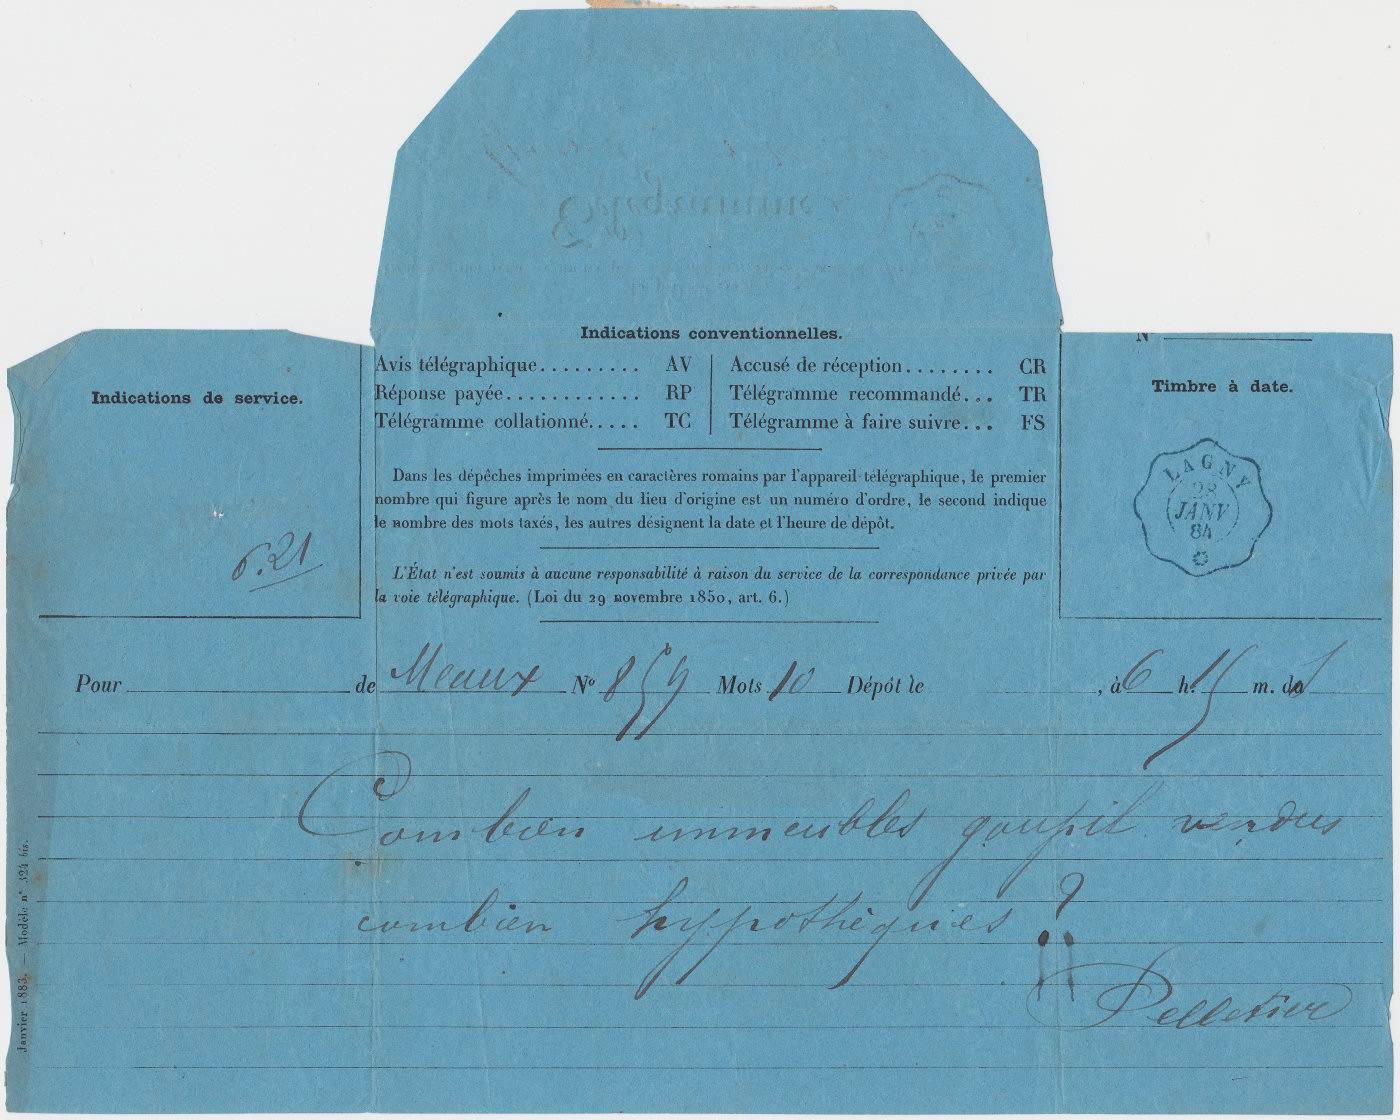 Indications conventionnelles.
Avis télégraphique......... AV
Réponse payée............ RP
Télégramme collationné..... TC
Accusé de réception........ CR
Télégramme recommandé... TR
Télégramme à faire suivre... FS
Dans les dépêches imprimées en caractères romains par l'appareil télégraphique, le premier
nombre qui figure après le nom du lieu d'origine est un numéro d'ordre, le second indique
le nombre des mots taxés, les autres désignent la date et l'heure de dépôt.
L'État n'est soumis à aucune responsabilité à raison du service de la correspondance privée par
la voie télégraphique. (Loi du 29 novembre 1850, art. 6.)
Indications de service.
6.21
N°
Timbre à date.
LAGNY
28
JANV
84
Pour de Meaux N° 859 Mots 10 Dépôt le , à 6 h. 15 m. du S
Combien immeubles goupil vendus
combien hypothèques ?
Pelletier
Janvier 1883. — Modèle n° 324 bis.